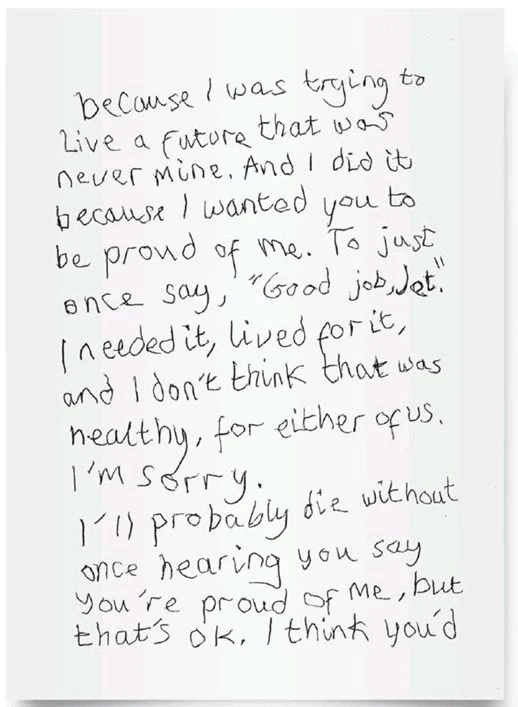 because I was trying to
Live a future that was
never mine. And I did it
because I wanted you to
be proud of me. To just
once say, "Good job, Jet."
I needed it, lived for it,
and I don't think that was
healthy, for either of us.
I'm sorry.
I'll probably die without
once hearing you say
you're proud of me, but
that's ok. I think you'd